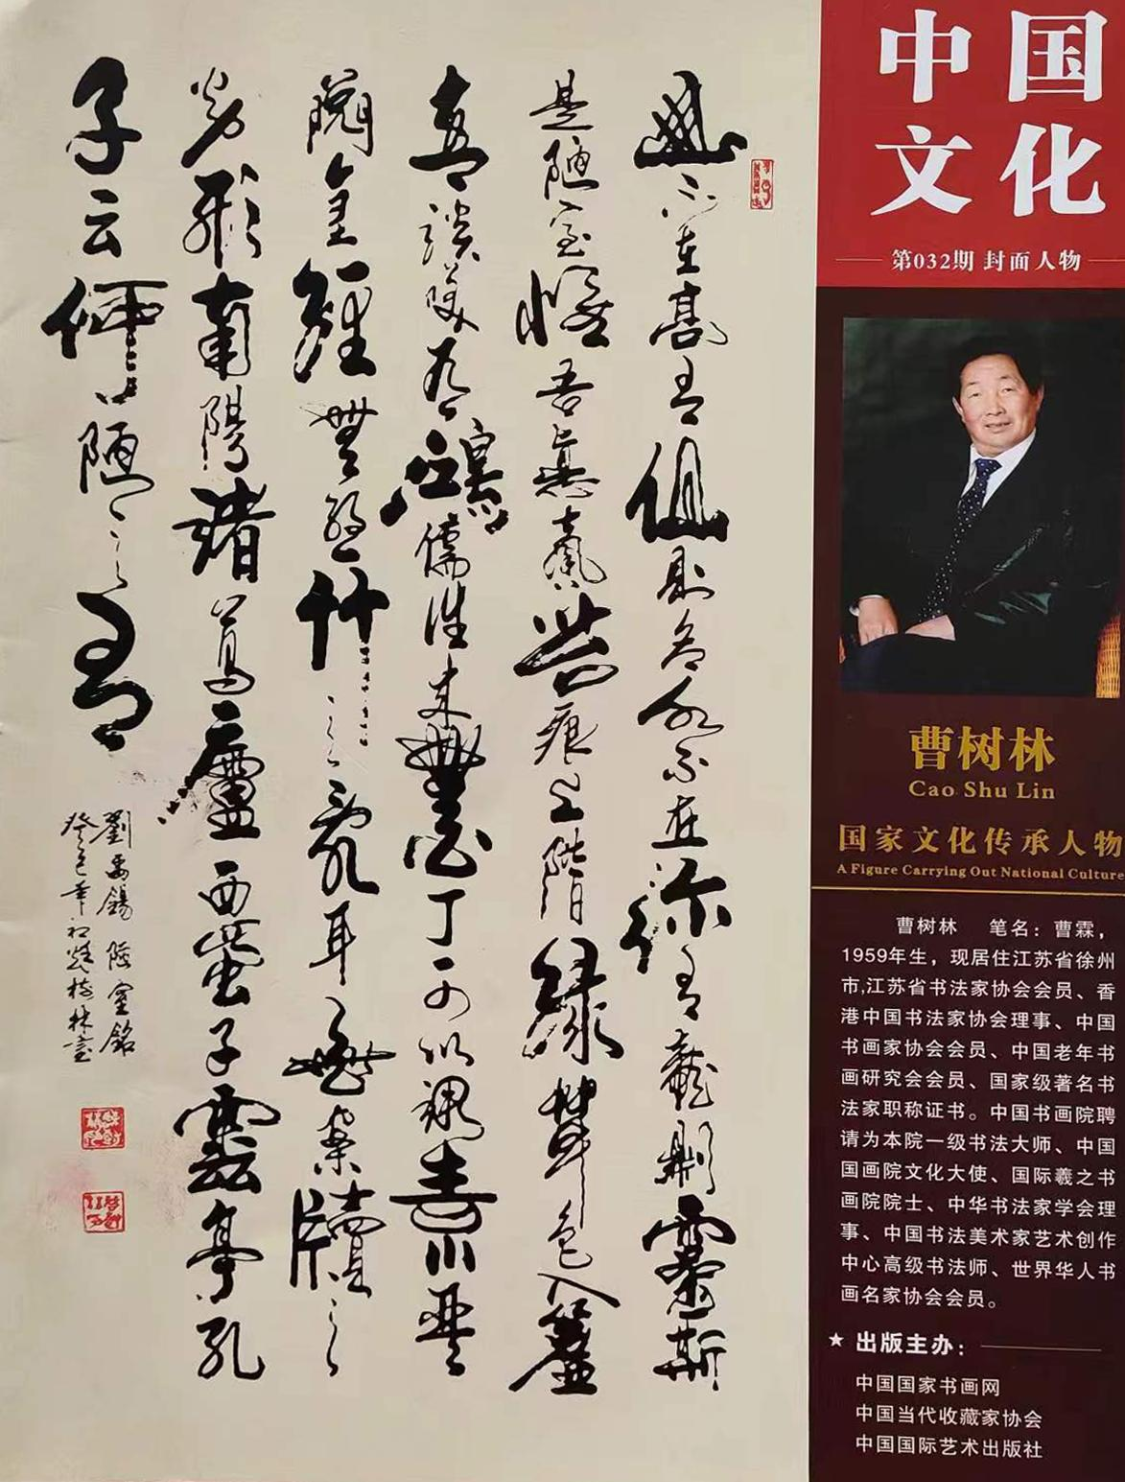 山不在高有仙則名水不在深有龍則靈斯
是陋室惟吾惪馨苔痕上階綠草色入簾
青談笑有鴻儒往來無白丁可以調素琴
閱金經無絲竹之亂耳無案牘之
勞形南陽諸葛廬西蜀子雲亭孔
子云何陋之有
劉禹錫陋室銘
癸巳年初樹林書
中国
文化
第032期 封面人物
曹树林
Cao Shu Lin
国家文化传承人物
A Figure Carrying Out National Culture
曹树林 笔名：曹霖，
1959年生，现居住江苏省徐州
市,江苏省书法家协会会员、香
港中国书法家协会理事、中国
书画家协会会员、中国老年书
画研究会会员、国家级著名书
法家职称证书。中国书画院聘
请为本院一级书法大师、中国
国画院文化大使、国际羲之书
画院院士、中华书法家学会理
事、中国书法美术家艺术创作
中心高级书法师、世界华人书
画名家协会会员。
★ 出版主办：
中国国家书画网
中国当代收藏家协会
中国国际艺术出版社